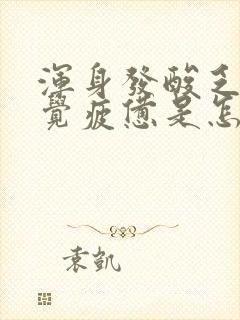 渾身發酸乏
覺疲憊是怎
袁凱